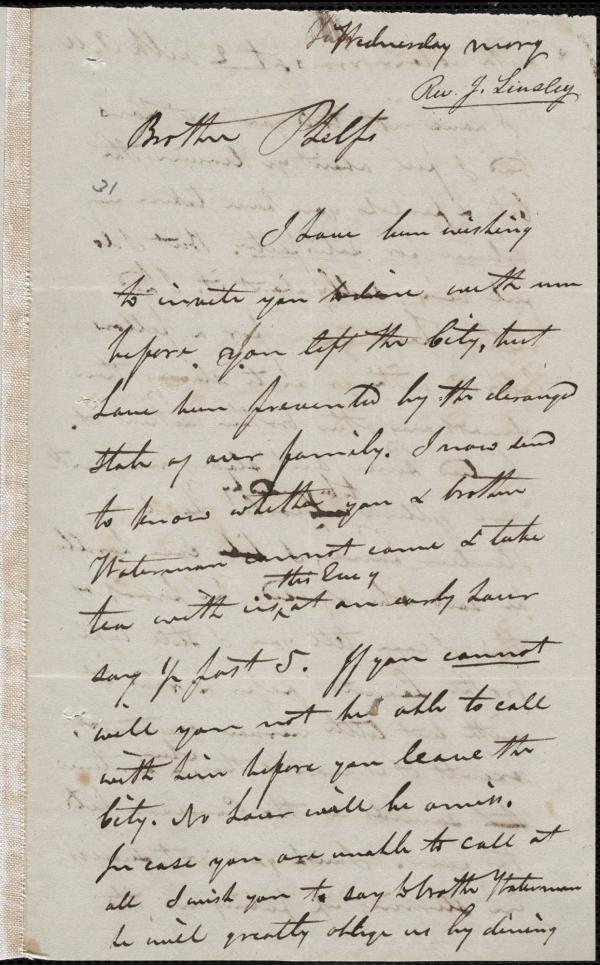 Wednesday morng
Rev. J. Linsley
Brother Phelps
31
I have been wishing
to invite you to dine with me
before you left the City, but
have been prevented by the deranged
state of our family. I now send
to know whether you & brother
Waterman cannot come & take
this Eveg
tea with us, at an early hour
say ½ past 5. If you cannot
will you not be able to call
with him before you leave the
City. No hour will be amiss.
In case you are unable to call at
all I wish you to say to brother Waterman
he will greatly oblige us by dining